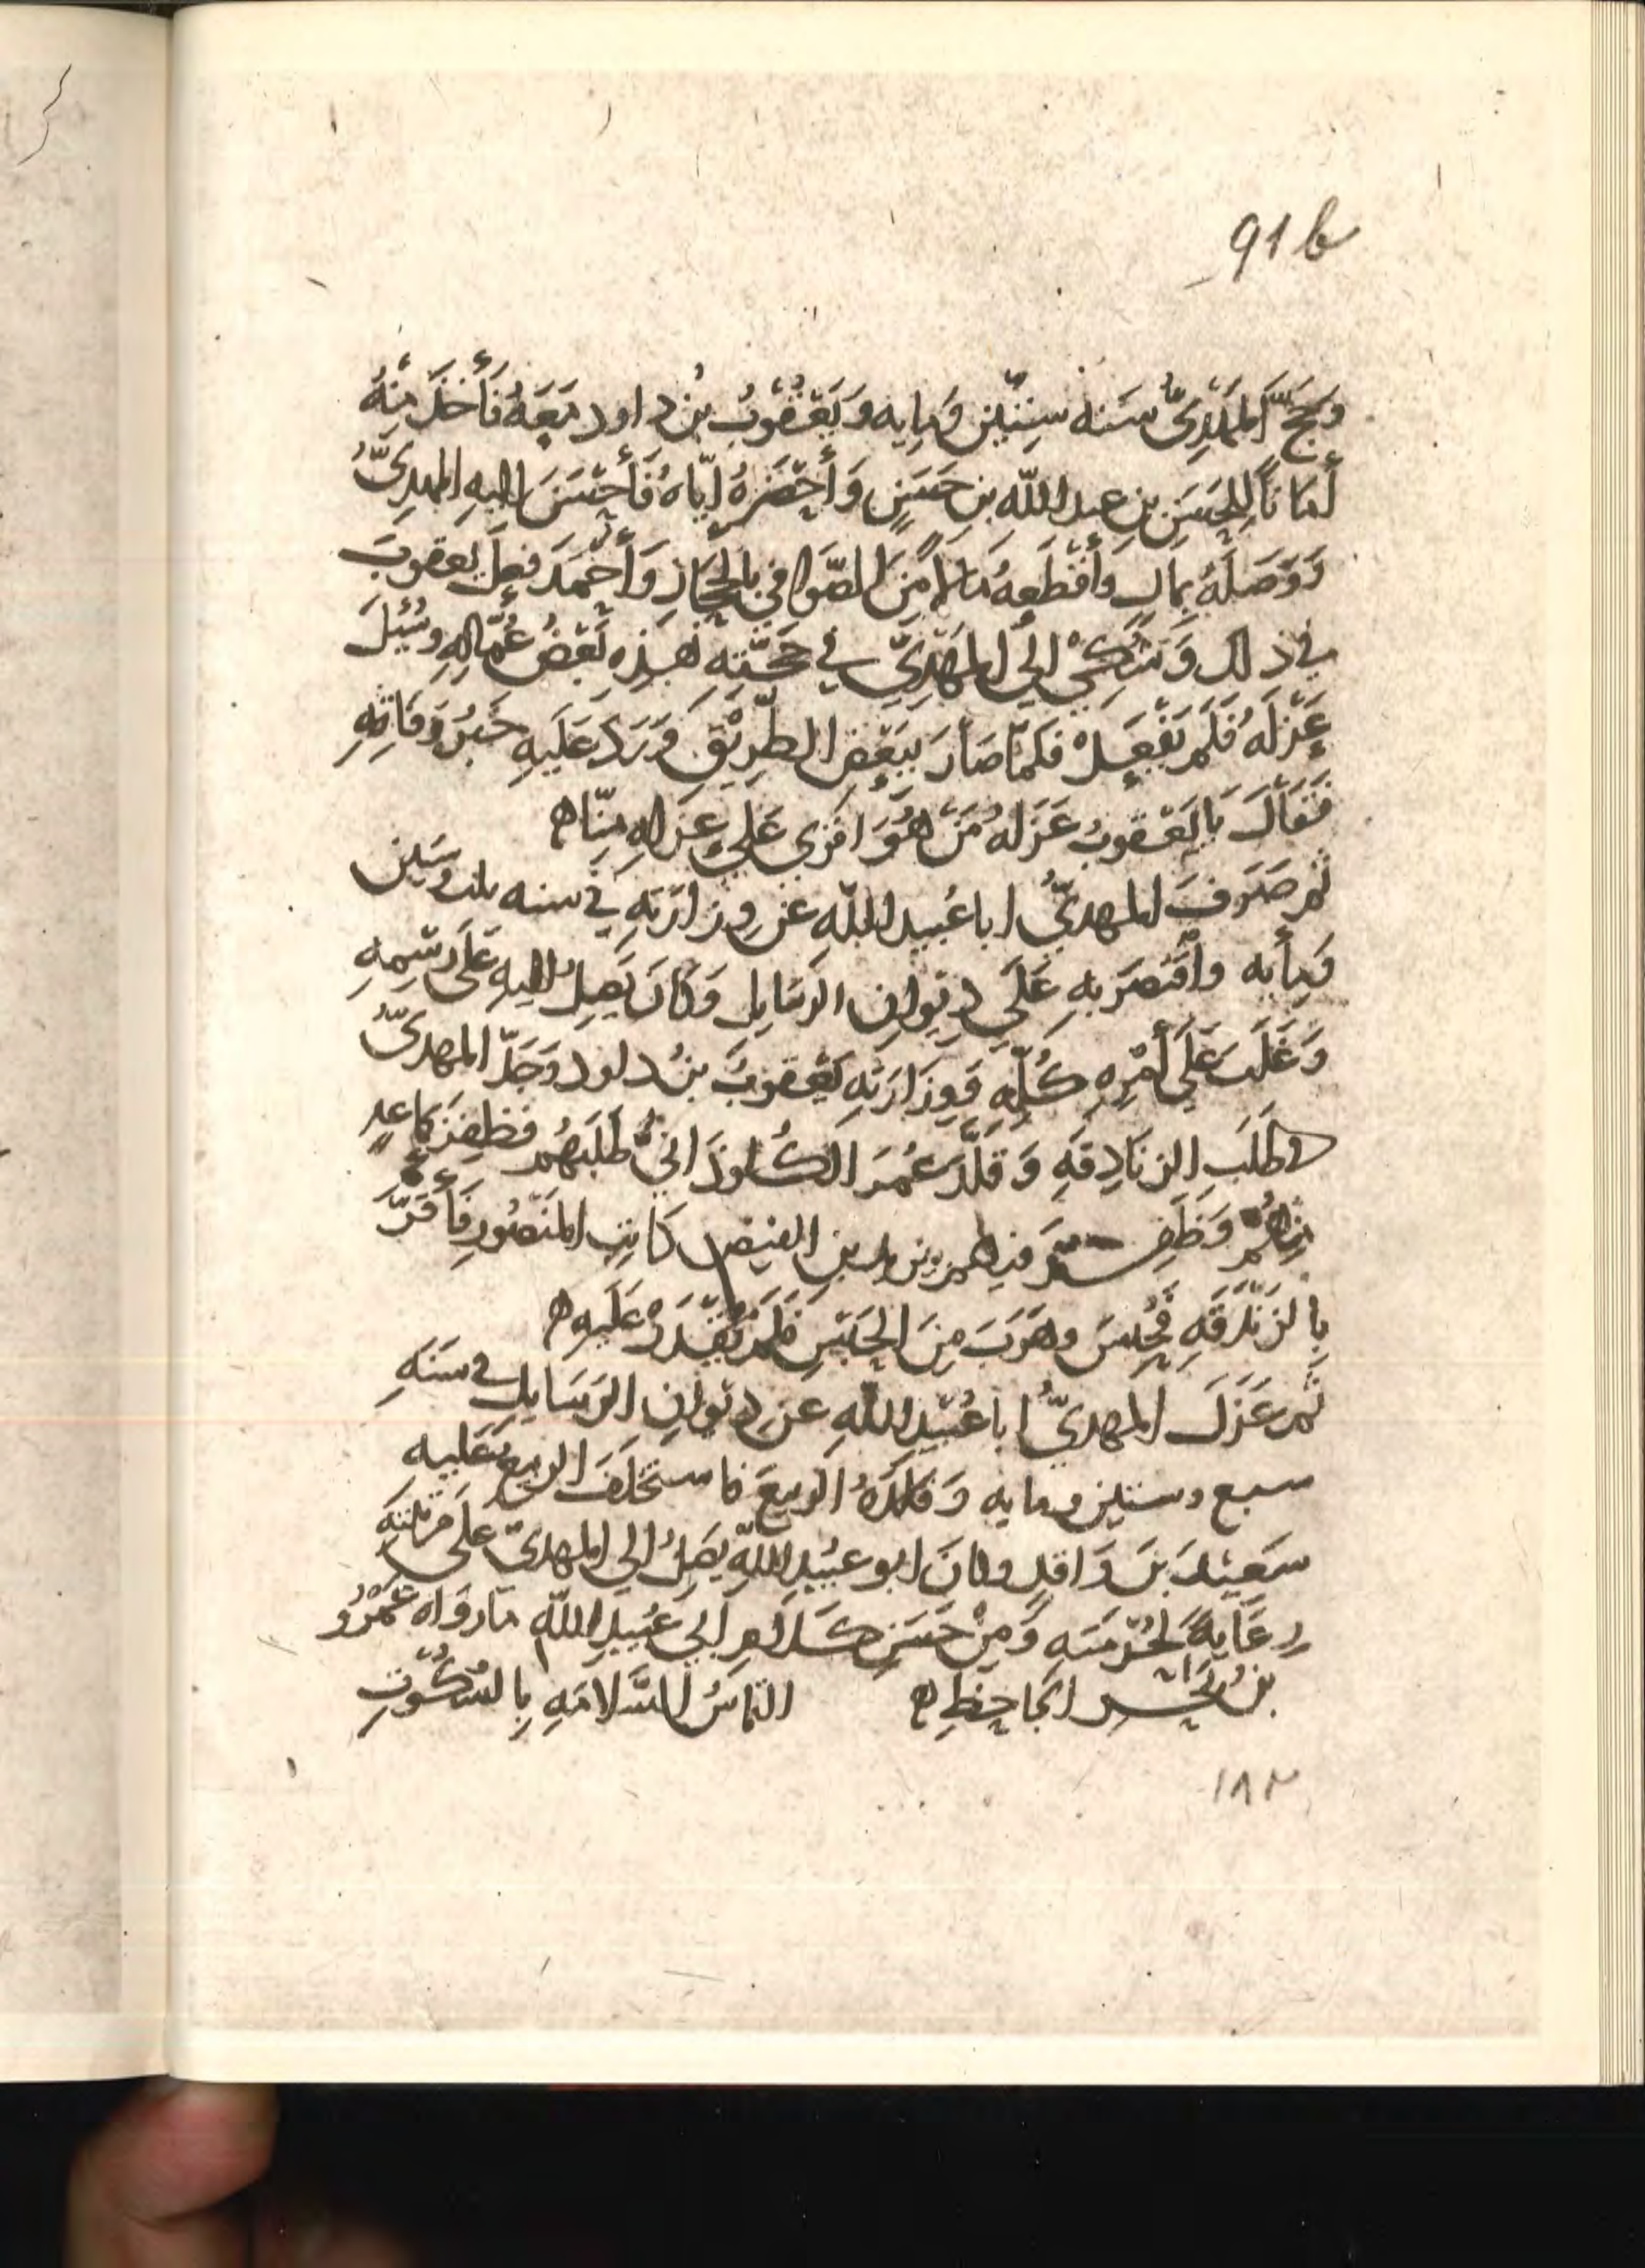 91b
وَحَجَّ المَهْدِيُّ سَنه سِتّين وَمايه وَيَعْقُوبُ بنُ داود مَعَهُ فَأَخَذَ مِنْهُ
أَمَاناً لِلحَسَنِ بنِ عبد اللّه بنِ حَسَنٍ وَأَحْضَرَهُ ايّاهُ فَأَحْسَنَ اليهِ المهدِىُّ
وَوَصَلَهُ بِمَالٍ وَأَقْطَعهُ مَالاً مِنَ الصَّوافي بالحِجَازِ وَأَحْمَدَ فِعلَ يعقوبَ
في ذلك وَشُكِىَ الي المَهْدِىِّ في حَجَّتِه هَذِهِ بَعْضُ عُمَّالِهِ وسُئِلَ
عَزْلَهُ فَلَم يَفْعَلْ فَلَمّا صَارَ بِبَعْضِ الطَّرِيْقِ وَرَدَ عَلَيهِ خَبَرُ وَفَاتِهِ
فَقَالَ يا يَعقوبُ عَزَلَهُ مَنْ هُوَ اقوَى عَلي عَزلِهِ مِنّا ه
ثم صَرَفَ المهدىُّ ابا عُبيد اللّهِ عَن وِزَارَتِهِ في سنه ثلث وستين
وَمِأيه وأَقْتَصَرَ بهِ عَلَى دِيوانِ الرسَايِلِ وَكَانَ يَصِلُ اليهِ عَلَى رَسْمِهِ
وَغَلَبَ عَلَي أَمْرِهِ كُلِّهِ وَوِزَارَتِهِ يَعْقوبُ بنُ داود وَجَدَّ المهدىُّ
في طَلَبِ الزنَادِقَهِ وَقَلَّدَ عُمَرَ الكَلْوذَانيَّ طَلَبَهُم فظَفِرَ بجماعهٍ
مِنهُم وَظَفِرَ فيهم بيزيد بنِ الفيضِ كَاتِبِ المَنْصُورِ فَأَقَرَّ
بِالزَنْدَقَهِ فَحُبِسَ وهَرَبَ مِنَ الحَبْسِ فَلَم يُقْدَرْ عَلَيهِ ه
ثُم عَزَلَ المهدىُّ ابا عُبَيْدِ اللّهِ عن دِيْوانِ الرَسَايِلِ في سَنَهِ
سبع وستين ومايه وَقَلّدَهُ الرّبيعَ فاستَخلَفَ الربيعُ عَلَيه
سَعِيْدَ بنَ وَاقدٍ وكانَ ابو عبيدِ اللّهِ يَصِلُ الي المهدىّ عَلَى مَرْتَبَتِهِ
رِعَايَهً لحُرْمَتِه وَمِنْ حَسَنِ كَلامِ ابي عُبَيدِ اللّهِ مَا رَوَاه عَمْرُو
بنُ بَحْرٍ الجاحِظ ه التماسُ السَّلامَهِ بِالسُكُوْتِ
١٨٢